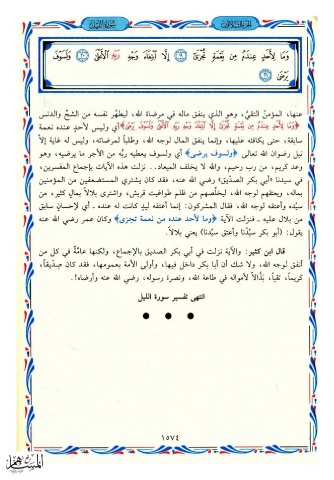 سورة الليل
وَمَا لِأَحَدٍ عِندَهُ مِن نِّعْمَةٍ تُجْزَىٰ ۝١٩ إِلَّا ابْتِغَاءَ وَجْهِ رَبِّهِ الْأَعْلَىٰ ۝٢٠ وَلَسَوْفَ
يَرْضَىٰ ۝٢١
عنها، المؤمنُ التقيُّ، وهو الذي ينفق ماله في مرضاة الله، ليطهِّر نفسه من الشحِّ والدنس
﴿وَمَا لِأَحَدٍ عِندَهُ مِن نِّعْمَةٍ تُجْزَىٰ إِلَّا ابْتِغَاءَ وَجْهِ رَبِّهِ الْأَعْلَىٰ وَلَسَوْفَ يَرْضَىٰ﴾ أي وليس لأحدٍ عنده نعمة
سابقة، حتى يكافئه عليها، وإنما ينفق المال لوجه الله، وطلباً لمرضاته، وليس له غاية إلاَّ
نيل رضوان الله تعالى ﴿ولسوف يرضى﴾ أي ولسوف يعطيه ربُّه من الأجر ما يرضيه، وهو
وعد كريم، من رب رحيم، والله لا يخلف الميعاد.. نزلت هذه الآيات بإجماع المفسرين،
في سيدنا «أبي بكر الصدّيق» رضي الله عنه، فقد كان يشتري المستضعفين من المؤمنين
بماله، ويعتقهم لوجه الله، ليخلِّصهم من ظلم طواغيت قريش، واشترى بلالاً بمالٍ كثير، من
سيِّده، وأعتقه لله، فقال المشركون: إنما أعتقه ليدٍ كانت له عنده ـ أي لإحسانٍ سابق
من بلال عليه ـ فنزلت الآية ﴿وما لأحد عنده من نعمة تجزى﴾ وكان عمر رضي الله عنه
يقول: (أبو بكر سيِّدُنا وأعتق سيِّدَنا) يعني بلالاً.
قال ابن كثير: والآية نزلت في أبي بكر الصديق بالإجماع، ولكنها عامَّةٌ في كل من
أنفق لوجه الله، ولا شك أن أبا بكر داخل فيها، وأولى الأمة بعمومها، فقد كان صِدِّيقاً،
كريماً، تقياً، بذَّالاً لأمواله في طاعة الله، ونصرة رسوله، رضي الله عنه وأرضاه!.
انتهى تفسير سورة الليل
١٥٧٤